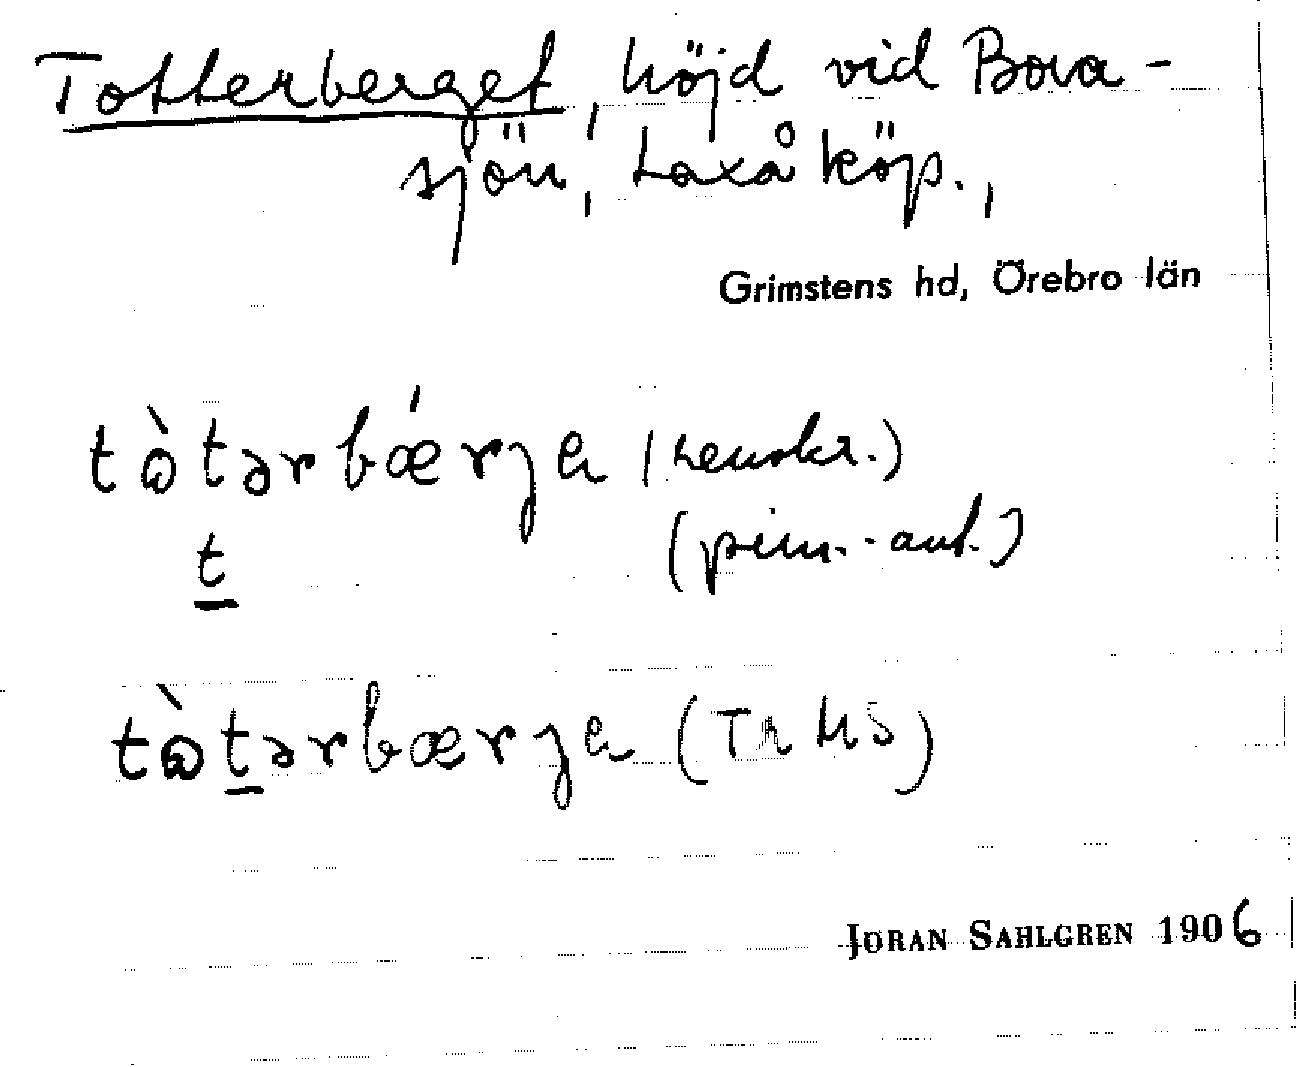 Totterberget, höjd vid Bova-
sjön, Laxå köp.,
Grimstens hd, Örebro län
tòtərbǽrjɐ (renskr.)
t (prim.-ant.)
tòtərbærjɐ
JÖRAN SAHLGREN 1906